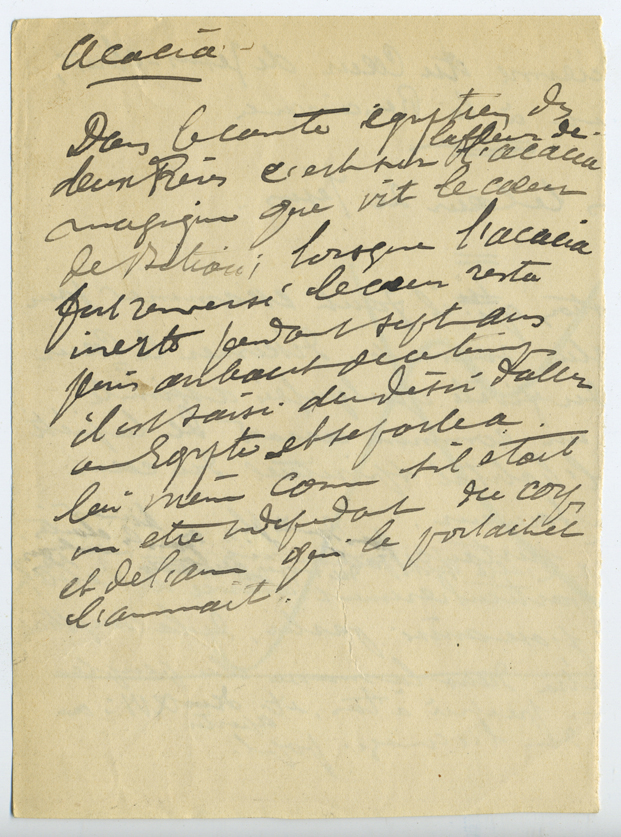 Acacia
Dans le conte égyptien des
deux frères c'est sur la fleur de l'acacia
magique que vit le cœur
de Bitiou; lorsque l'acacia
fut renversé le cœur resta
inerte pendant sept ans
puis au bout de ce temps
il est saisi du désir d'aller
en Egypte et se parle a
lui même comme s'il était
un etre independant du corps
et de l'ame qui le portait et
l'animait.